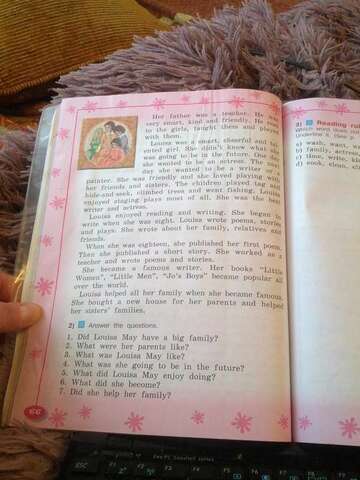 Her father was a teacher. He was
very smart, kind and friendly. He read
to the girls, taught them and played
with them.
Louisa was a smart, cheerful and tal-
ented girl. She didn't know what she
was going to be in the future. One day
she wanted to be an actress. The
day she wanted to be a writer or a
painter. She was friendly and she loved playing with
her friends and sisters. The children played tag and
hide-and-seek, climbed trees and went fishing. Louisa
enjoyed staging plays most of all. She was the best
writer and actress.
Louisa enjoyed reading and writing. She began to
write when she was eight. Louisa wrote poems, stories
and plays. She wrote about her family, relatives and
friends.
When she was eighteen, she published her first poem.
Then she published a short story. She worked as a
teacher and wrote poems and stories.
She became a famous writer. Her books "Little
Women", "Little Men", "Jo's Boys" became popular all
over the world.
Louisa helped all her family when she became famous.
She bought a new house for her parents and helped
her sisters' families.
2) Answer the questions.
1. Did Louisa May have a big family?
2. What were her parents like?
3. What was Louisa May like?
4. What was she going to be in the future?
5. What did Louisa May enjoy doing?
6. What did she become?
7. Did she help her family?
66
3) Reading rul
Which word does
Underline it. (See
a) wash, want, w
b) family, actress
c) time, write, ki
d) seek, clean, cl
ESC F1 F2 F3 F4 F5 F6 F7 F8